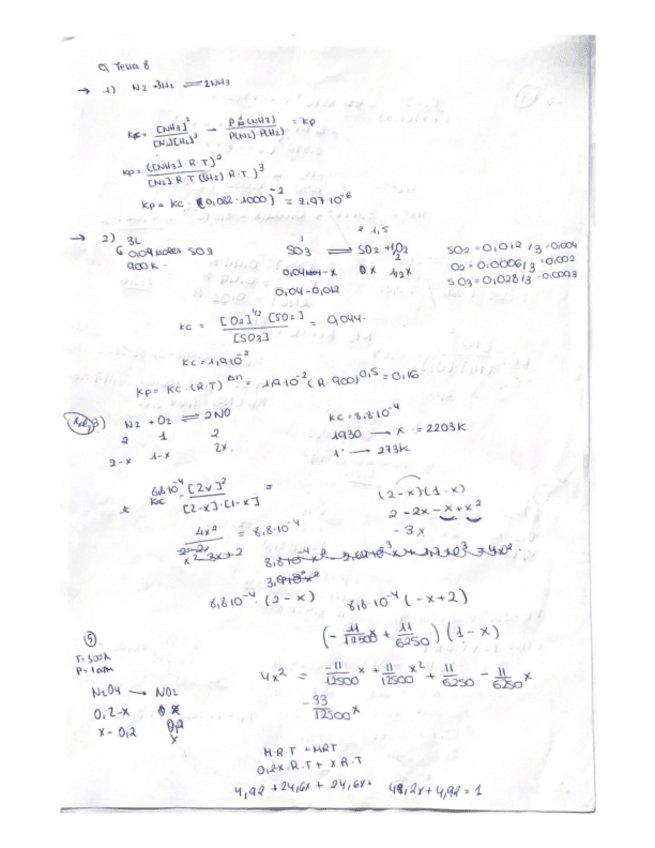 Tema 8
→ 1) N2 + 3H2 ⇌ 2NH3
Kpc = [NH3]² / [N2][H2]³ → P(NH3) / P(N2) P(H2) = Kp
Kp = ([NH3]·R·T)² / [N2]·R·T ([H2]·R·T)³
Kp = Kc · (0,082·1000)⁻² = 2,97·10⁻⁶
→ 2) 3L
0,04 moles SO3
900K.
SO3 ⇌ SO2 + 1/2 O2
0,04-x 0x 1/2x
0,04-0,012
SO2 = 0,012/3 = 0,004
O2 = 0,006/3 = 0,002
SO3 = 0,028/3 = 0,0093
Kc = [O2]^1/2 · [SO2] / [SO3] = 0,044.
Kc = 1,9·10⁻²
Kp = Kc · (R·T)^Δn = 1,9·10⁻² (R·900)^0,5 = 0,16
3) N2 + O2 ⇌ 2NO
2 1 2
2-x 1-x 2x.
Kc = 8,8·10⁻⁴
1930 → x = 2203K
1° → 273K
8,8·10⁻⁴ [2x]² =
Kc [2-x]·[1-x]
4x² / x²-3x+2 = 8,8·10⁻⁴
(2-x)(1-x)
2-2x-x+x²
-3x
8,8·10⁻⁴·(2-x) 8,8·10⁻⁴(-x+2)
(-11/12500 x + 11/6250)(1-x)
4x² = -11/12500 x + 11/12500 x² + 11/6250 - 11/6250 x
-33/12500 x
5.
T=300K
P=1atm
N2O4 → NO2
0,2-x
x-0,2 0,2
x
M·R·T + MRT
0,2-x·R·T + x R·T
4,92 + 24,6x + 24,6x 49,2x + 4,92 = 1